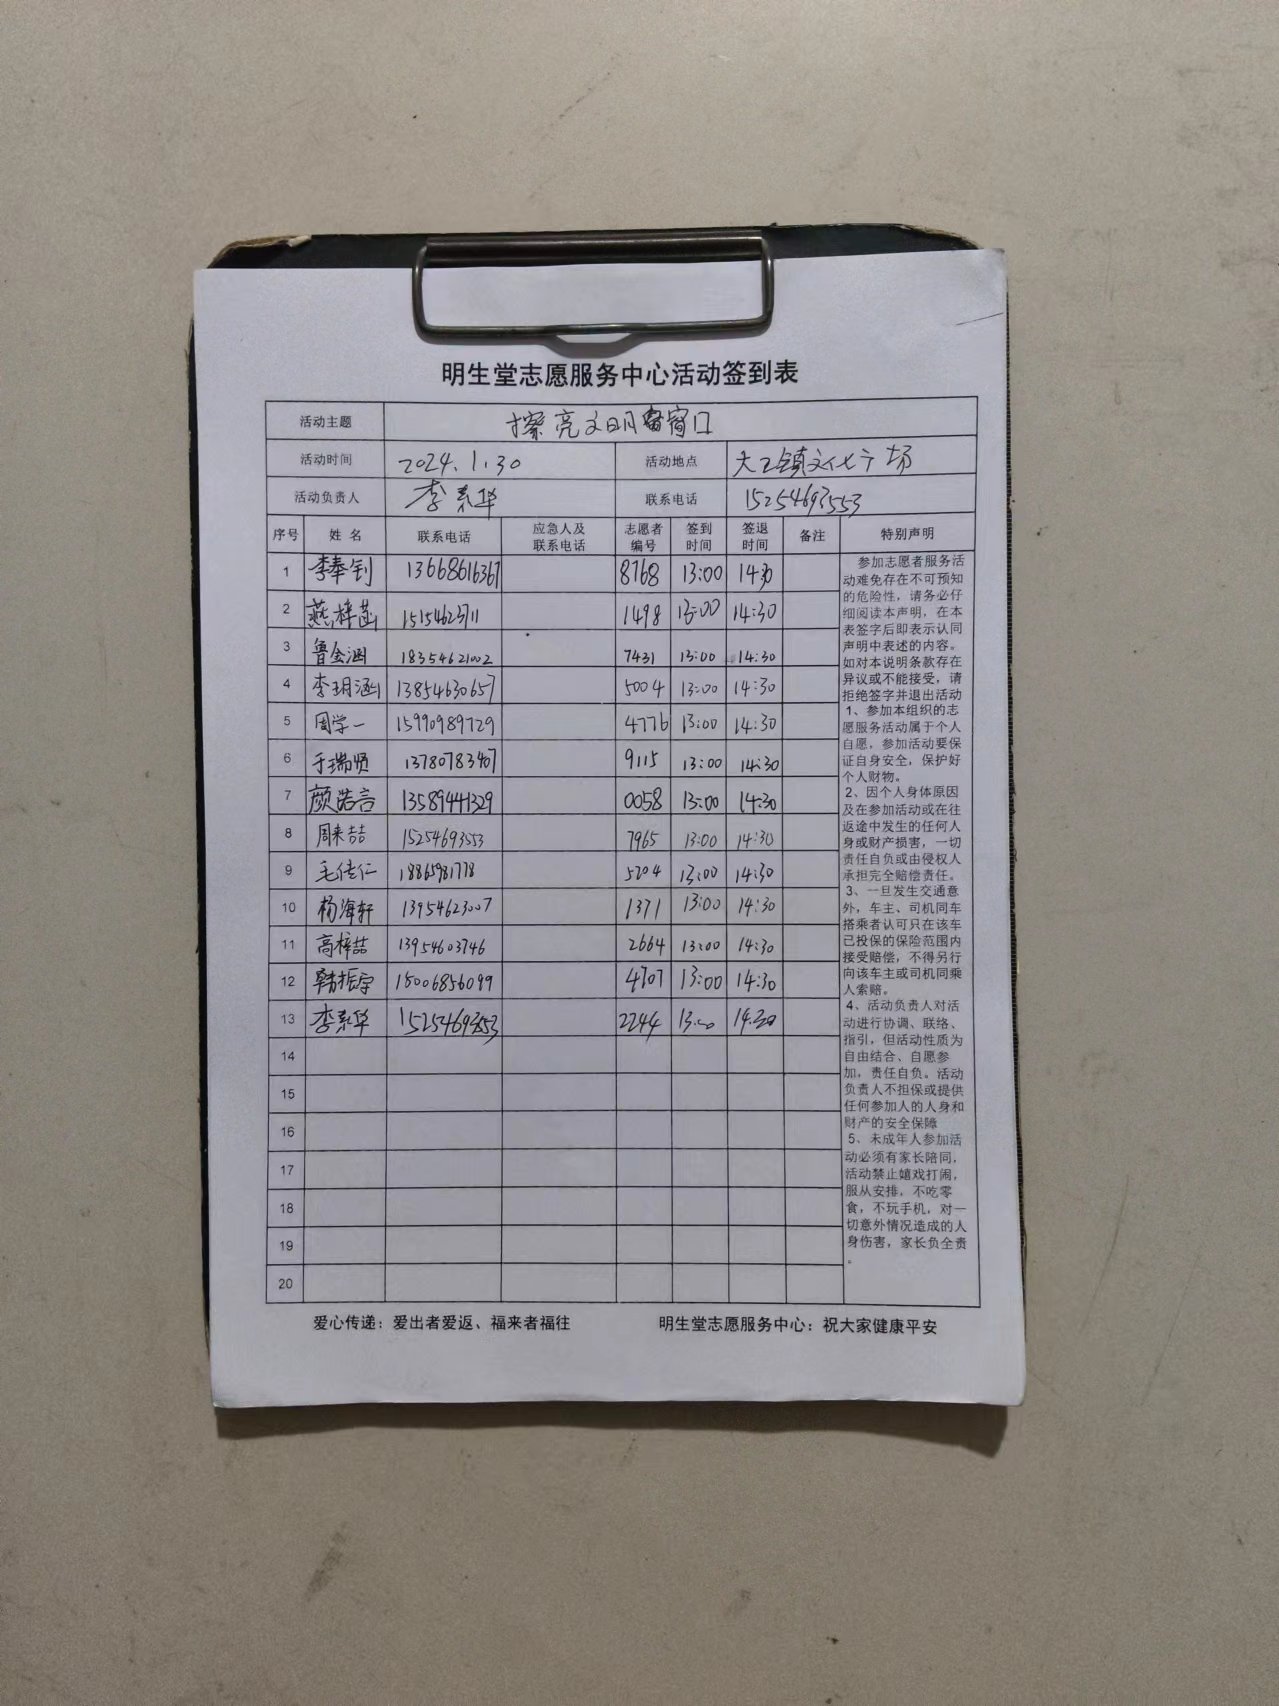 明生堂志愿服务中心活动签到表
活动主题 擦亮文明窗口
活动时间 2024.1.30 活动地点 大王镇文化广场
活动负责人 李素华 联系电话 15254693553
序号 姓名 联系电话 应急人及联系电话 志愿者编号 签到时间 签退时间 备注 特别声明
1 李奉钊 13668616367 8768 13:00 14:30
2 燕梓菡 15154623711 1498 13:00 14:30
3 鲁金涵 18354621002 7431 13:00 14:30
4 李玥涵 13854630657 5004 13:00 14:30
5 周学一 15990989729 4776 13:00 14:30
6 于瑞贤 13780783407 9115 13:00 14:30
7 颜诺言 13589441329 0058 13:00 14:30
8 周来喆 15254693553 7965 13:00 14:30
9 毛佳仁 18865981778 5204 13:00 14:30
10 杨海轩 13954623007 1371 13:00 14:30
11 高梓喆 13954603746 2664 13:00 14:30
12 韩振宇 15006856099 4707 13:00 14:30
13 李素华 15254693553 2244 13:00 14:30
14
15
16
17
18
19
20
参加志愿者服务活
动难免存在不可预知
的危险性，请务必仔
细阅读本声明，在本
表签字后即表示认同
声明中表述的内容。
如对本说明条款存在
异议或不能接受，请
拒绝签字并退出活动
1、参加本组织的志
愿服务活动属于个人
自愿，参加活动要保
证自身安全，保护好
个人财物。
2、因个人身体原因
及在参加活动或在往
返途中发生的任何人
身或财产损害，一切
责任自负或由侵权人
承担完全赔偿责任。
3、一旦发生交通意
外，车主、司机同车
搭乘者认可只在该车
已投保的保险范围内
接受赔偿，不得另行
向该车主或司机同乘
人索赔。
4、活动负责人对活
动进行协调、联络、
指引，但活动性质为
自由结合、自愿参
加，责任自负。活动
负责人不担保或提供
任何参加人的人身和
财产的安全保障
5、未成年人参加活
动必须有家长陪同，
活动禁止嬉戏打闹，
服从安排，不吃零
食，不玩手机，对一
切意外情况造成的人
身伤害，家长负全责
。
爱心传递：爱出者爱返、福来者福往 明生堂志愿服务中心：祝大家健康平安